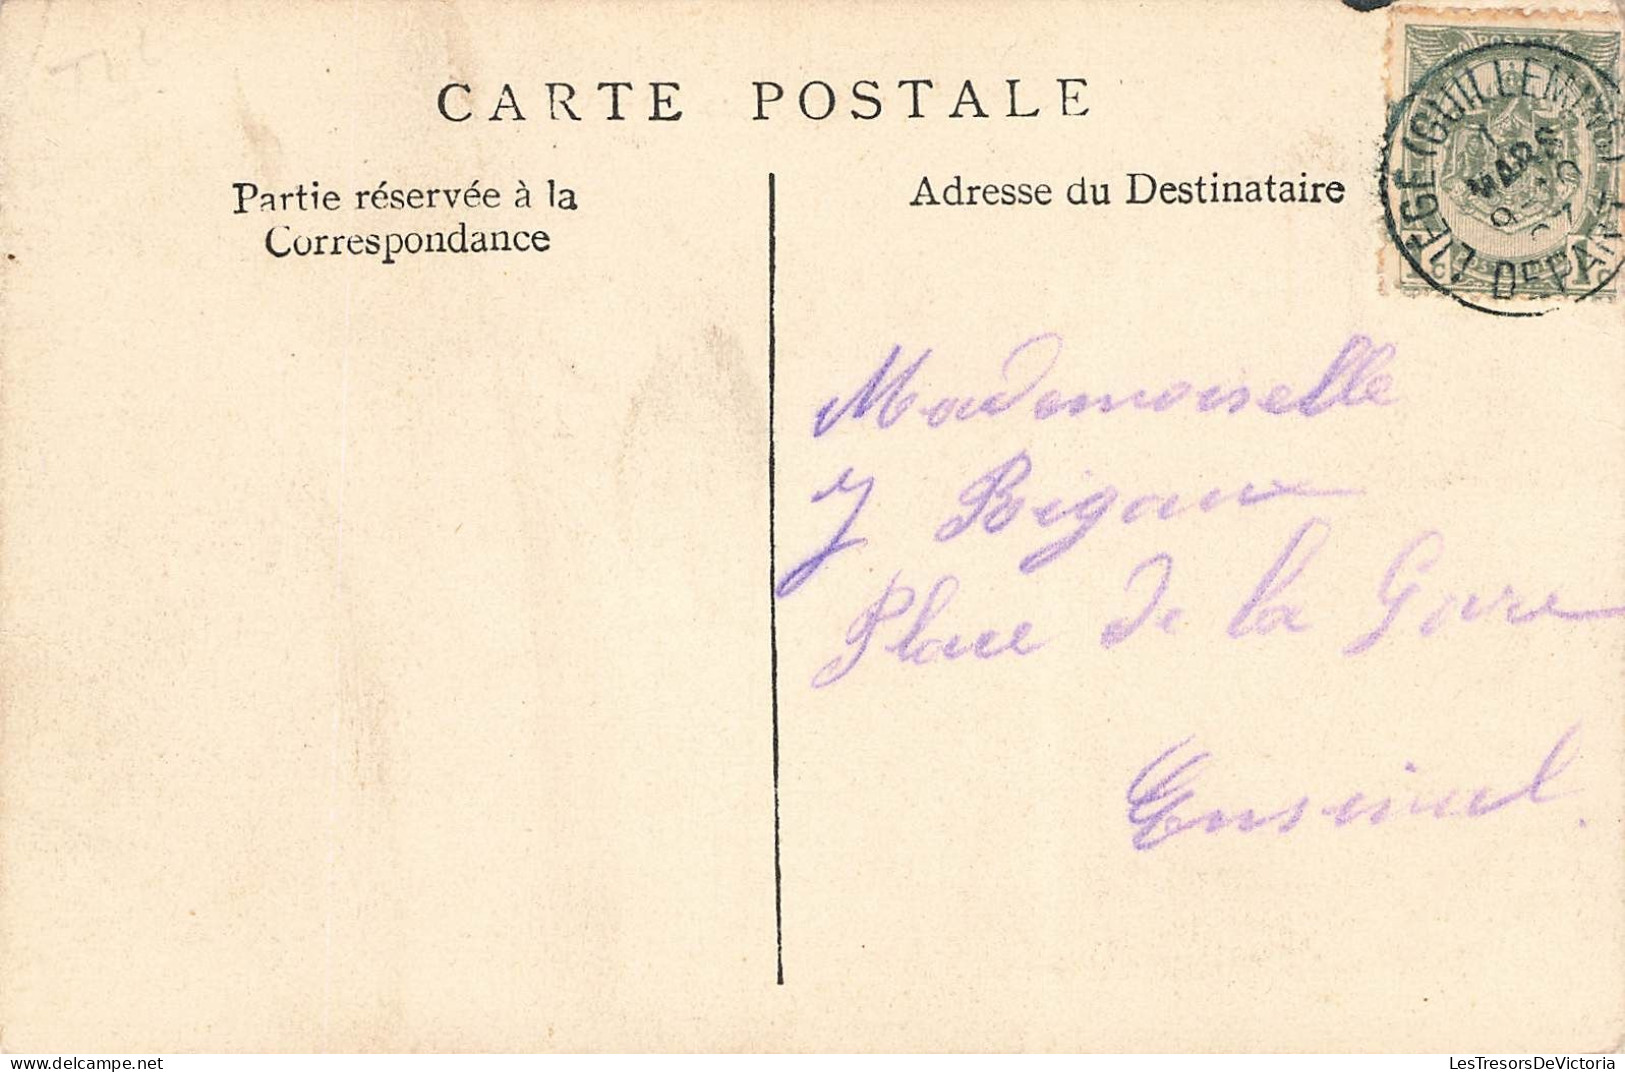 CARTE POSTALE
Partie réservée à la
Correspondance
Adresse du Destinataire
POSTES
LIEGE (GUILLEMINS)
1
MARS
9-10
DEPART
1c 1c
Mademoiselle
J Bigaux
Place de la Gare
Ensival.
LesTresorsDeVictoria